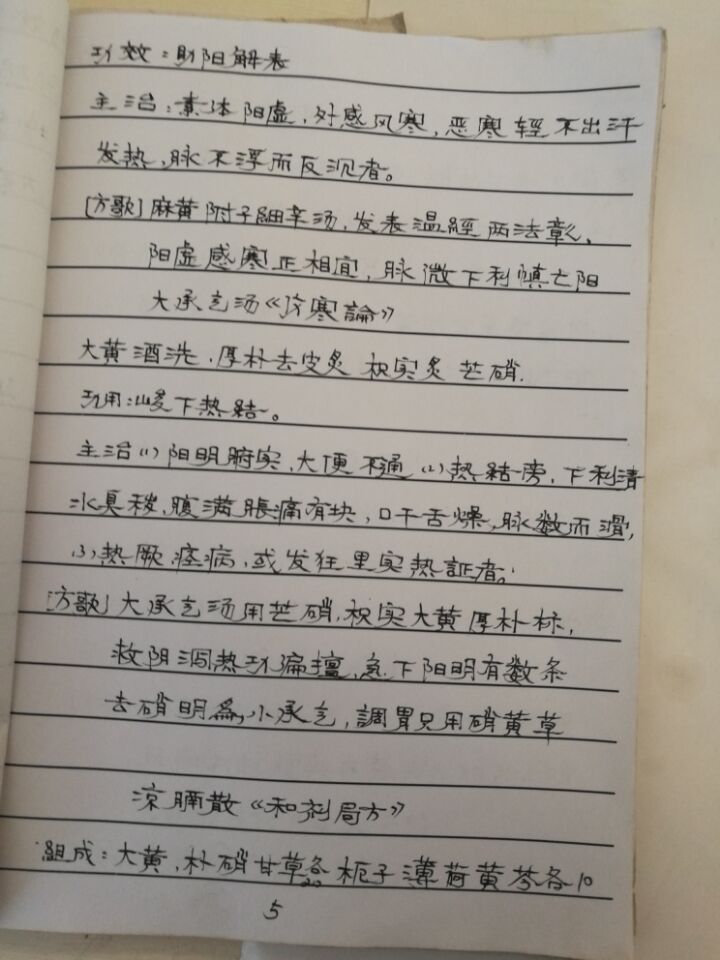 功效：助阳解表
主治：素体阳虚，外感风寒，恶寒輕不出汗
发热，脉不浮而反沉者。
[方歌]麻黄附子細辛汤，发表温經两法彰、
阳虚感寒正相宜，脉微下利慎亡阳
大承气汤《伤寒論》
大黄酒洗，厚朴去皮炙 枳实炙 芒硝.
功用：峻下热結。
主治(1)阳明腑实，大便不通(2)热結旁，下利清
水臭秽，腹满脹痛有块，口干舌燥，脉数而滑，
(3)热厥，痉病，或发狂里实热証者。
[方歌]大承气汤用芒硝，枳实大黄厚朴标，
救阴泻热功偏擅，急下阳明有数条
去硝明為小承气，調胃只用硝黄草
涼膈散《和剂局方》
組成：大黄，朴硝甘草各20 栀子薄荷黄芩各10
5